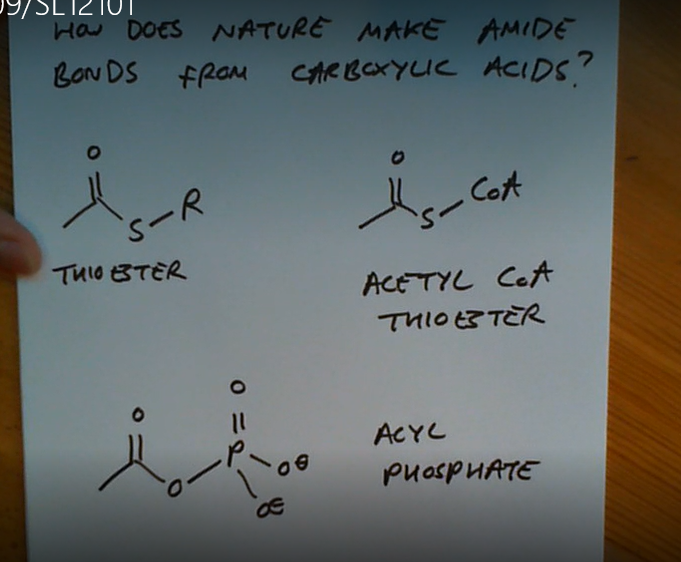 09/SL12101
HOW DOES NATURE MAKE AMIDE
BONDS FROM CARBOXYLIC ACIDS?
O
O
S R
S CoA
THIOESTER
ACETYL CoA
THIOESTER
O
O
P
O
O⊖
O⊖
ACYL
PHOSPHATE